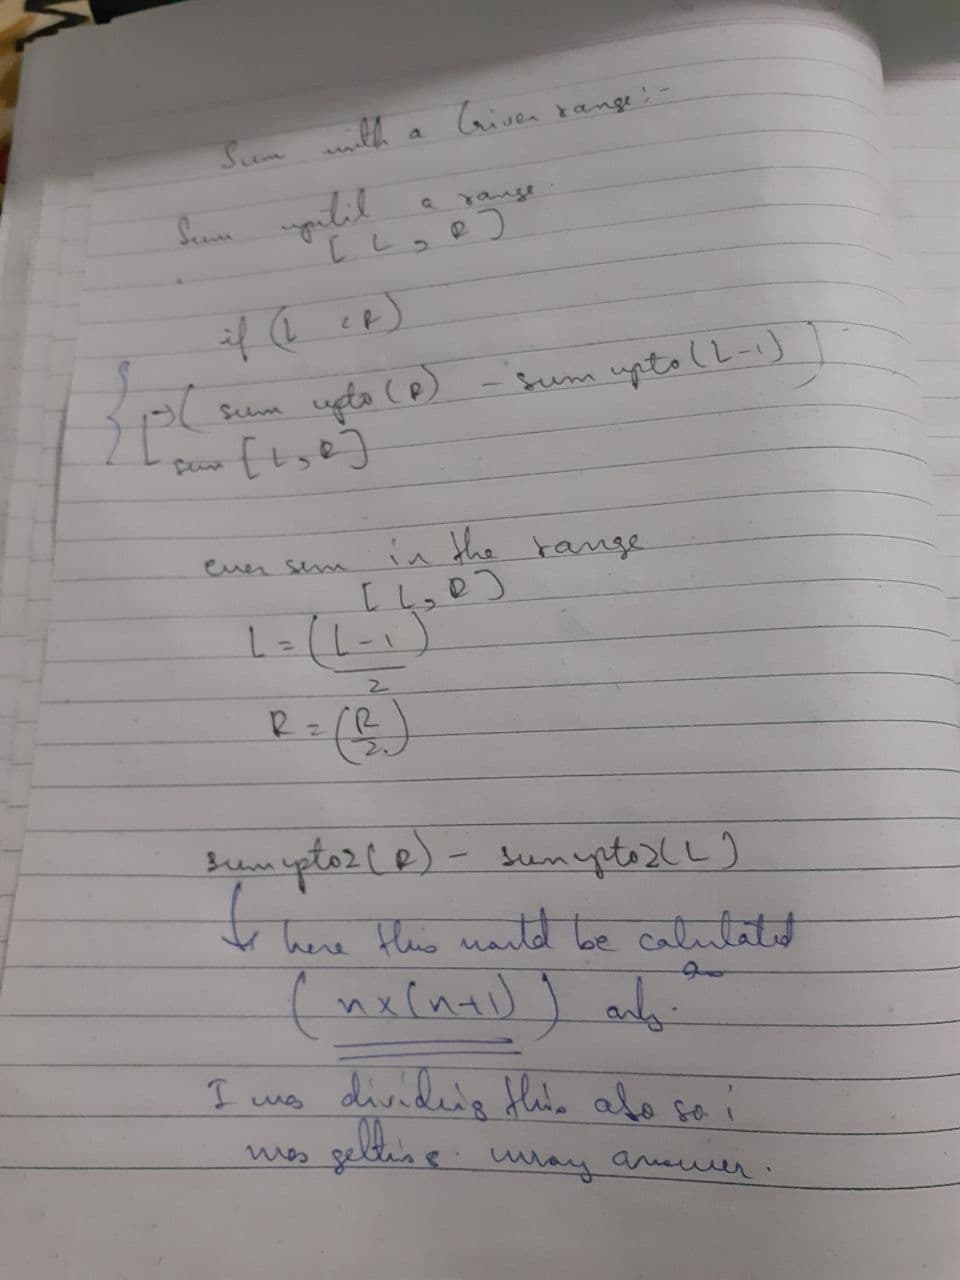 Sum with a Given range:-
Sum uptil a range
[ L , R ]
if (L < R)
{ [ → ( sum upto (R) - sum upto (L-1) )
sum [ L, R ]
even sum in the range
[ L, R ]
L = (L-1)
2
R = (R
2.)
sumupto2(R) - sumupto2(L)
↳ here this would be calculated
as
( n x (n+1) ) only.
I was dividing this also so i
was getting wrong answer.